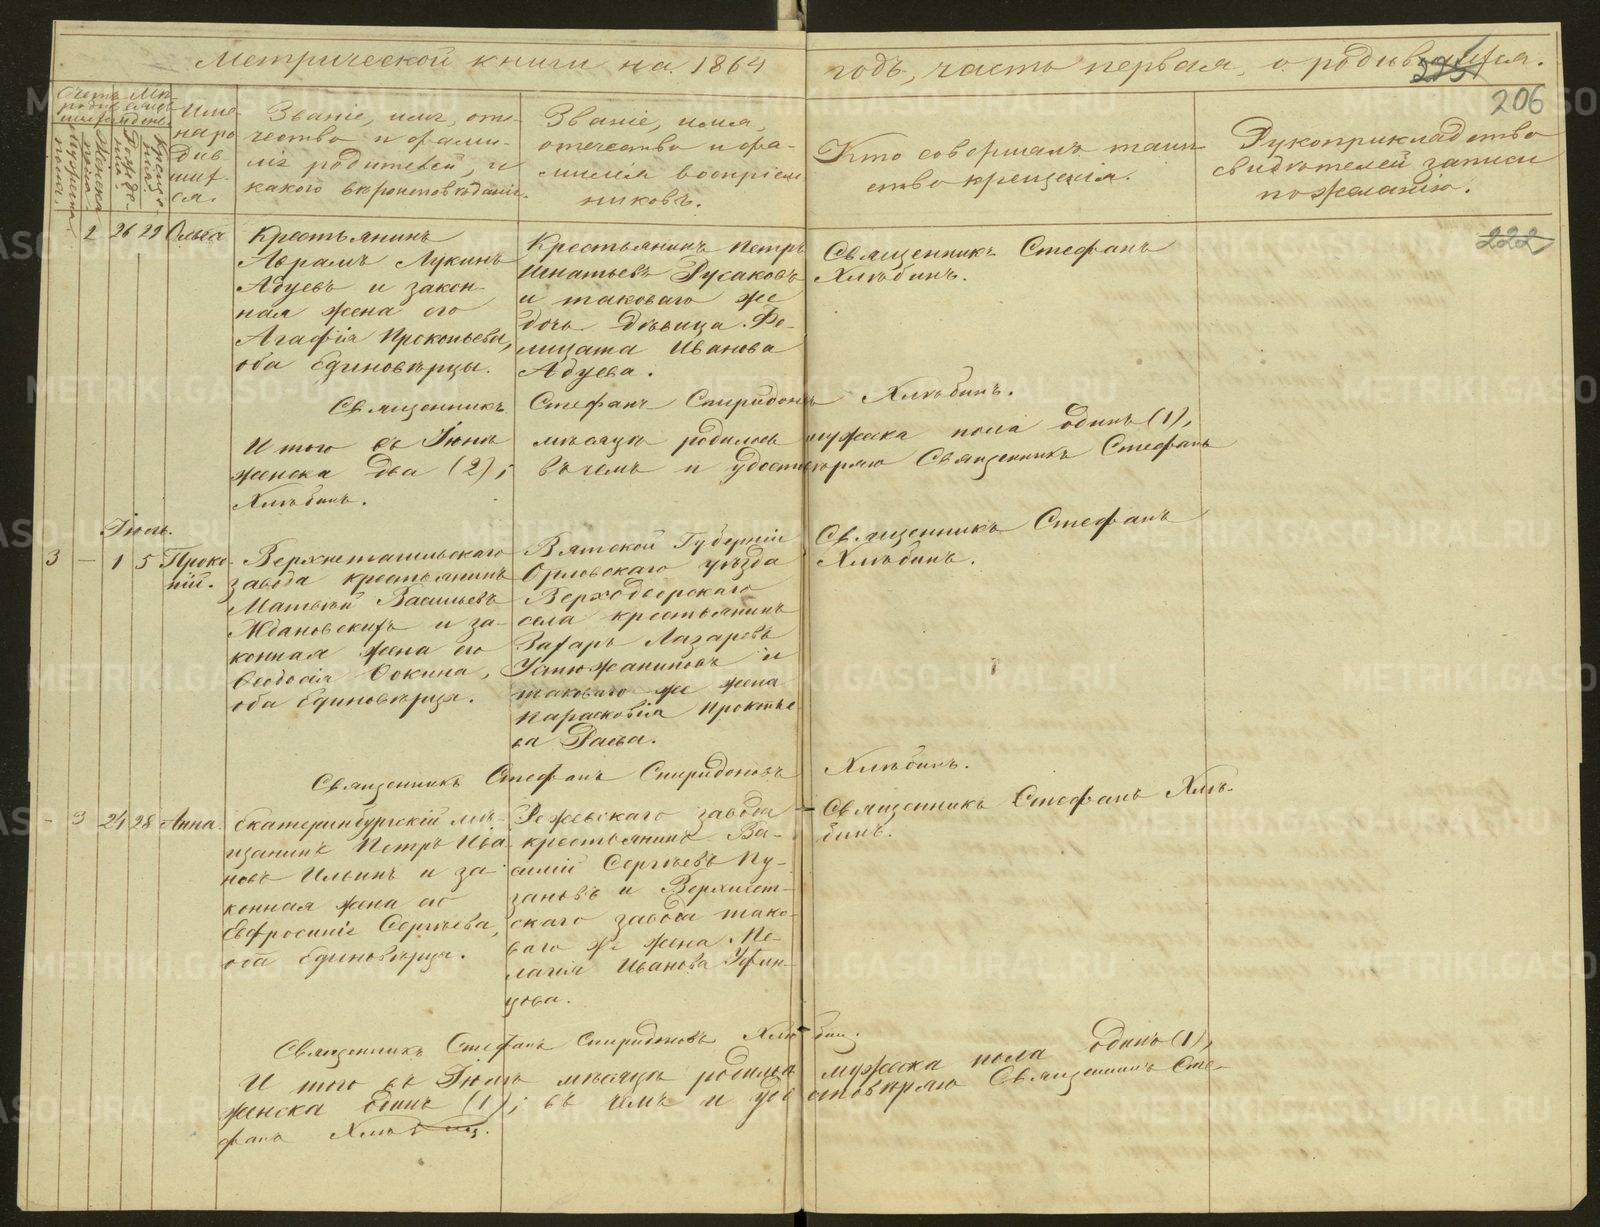 Метрической книги на 1864 годъ, часть первая, о родившихся.
206
Счетъ родившихся
Мѣсяцъ и день
Мужеска пола.
Женска пола.
Рожденія
Крещенія.
Имена родившихся.
Званіе, имя, отчество и фамилія родителей, и какого вѣроисповѣданія.
Званіе, имя, отечество и фамилія воспріемниковъ.
Кто совершалъ таинство крещенія.
Рукоприкладство свидѣтелей записи по желанію.
222
2 26 29 Ольга
Крестьянинъ
Аврамъ Лукинъ
Адуевъ и закон-
ная жена его
Агафія Прокопьева,
оба Единовѣрцы.
Крестьянинъ Петръ
Игнатьевъ Русаковъ
и таковаго же
дочь дѣвица Фе-
лицата Иванова
Адуева.
Священникъ Стефанъ
Хлѣбинъ.
Священникъ Стефанъ Спиридоновъ Хлѣбинъ.
И того въ Іюнѣ мѣсяцѣ родилось мужеска пола одинъ (1),
женска два (2); въ чемъ и удостовѣряю Священникъ Стефанъ
Хлѣбинъ.
Іюль.
3 — 1 5 Проко-
пій.
Верхнетагильскаго
завода крестьянинъ
Матвѣй Васильевъ
Ждановскихъ и за-
конная жена его
Ѳеодосія Фокина,
оба Единовѣрцы.
Вятской Губерніи
Орловскаго уѣзда
Верходворскаго
села крестьянинъ
Захаръ Лазаревъ
Устюжаниновъ и
таковаго же жена
Парасковія Прокопье-
ва
Священникъ Стефанъ
Хлѣбинъ.
Священникъ Стефанъ Спиридоновъ Хлѣбинъ.
- 3 24 28 Анна.
Екатеринбургскій мѣ-
щанинъ Петръ Ива-
новъ Ильинъ и за-
конная жена его
Евфросинія Сергѣева,
оба Единовѣрцы.
Режевскаго завода
крестьянинъ Ва-
силій Сергѣевъ Пу-
зановъ и Верхисет-
скаго завода тако-
ваго же жена Пе-
лагія Иванова Уфин-
цова.
Священникъ Стефанъ Хлѣ-
бинъ.
Священникъ Стефанъ Спиридоновъ Хлѣбинъ.
И того въ Іюлѣ мѣсяцѣ родилось мужеска пола одинъ (1),
женска одинъ (1); въ чемъ и удостовѣряю Священникъ Сте-
фанъ Хлѣбинъ.
METRIKI.GASO-URAL.RU